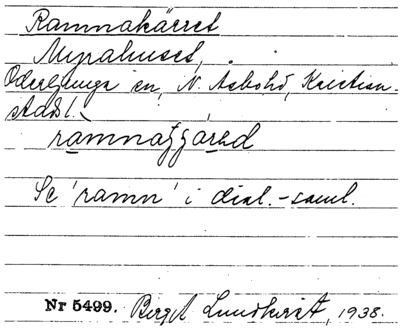 Ramnakärret
Myrahuset,
Oderljunga sn, N. Åsbohd, Kristian-
stads l.
Se 'ramn' i dial.-saml.
Nr 5499. Bergit Lundkvist, 1938.